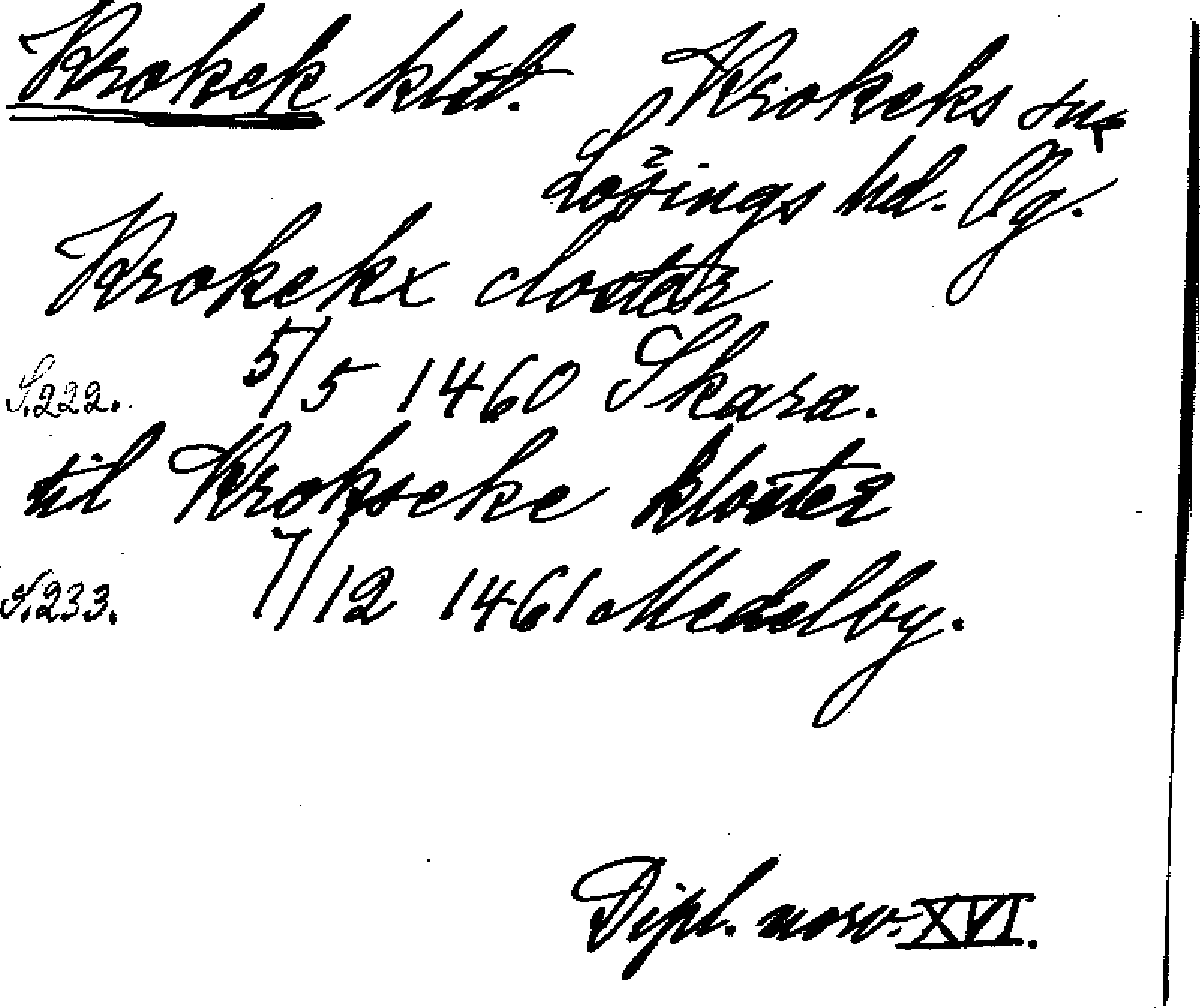 Krokek klst. Krokeks sn
Lösings hd. Ög.
Krokekx closter
5/5 1460 Skara.
S. 222.
til Krokseke kloster
7/12 1461 Medelby.
S. 233.
Dipl. norv. XVI.